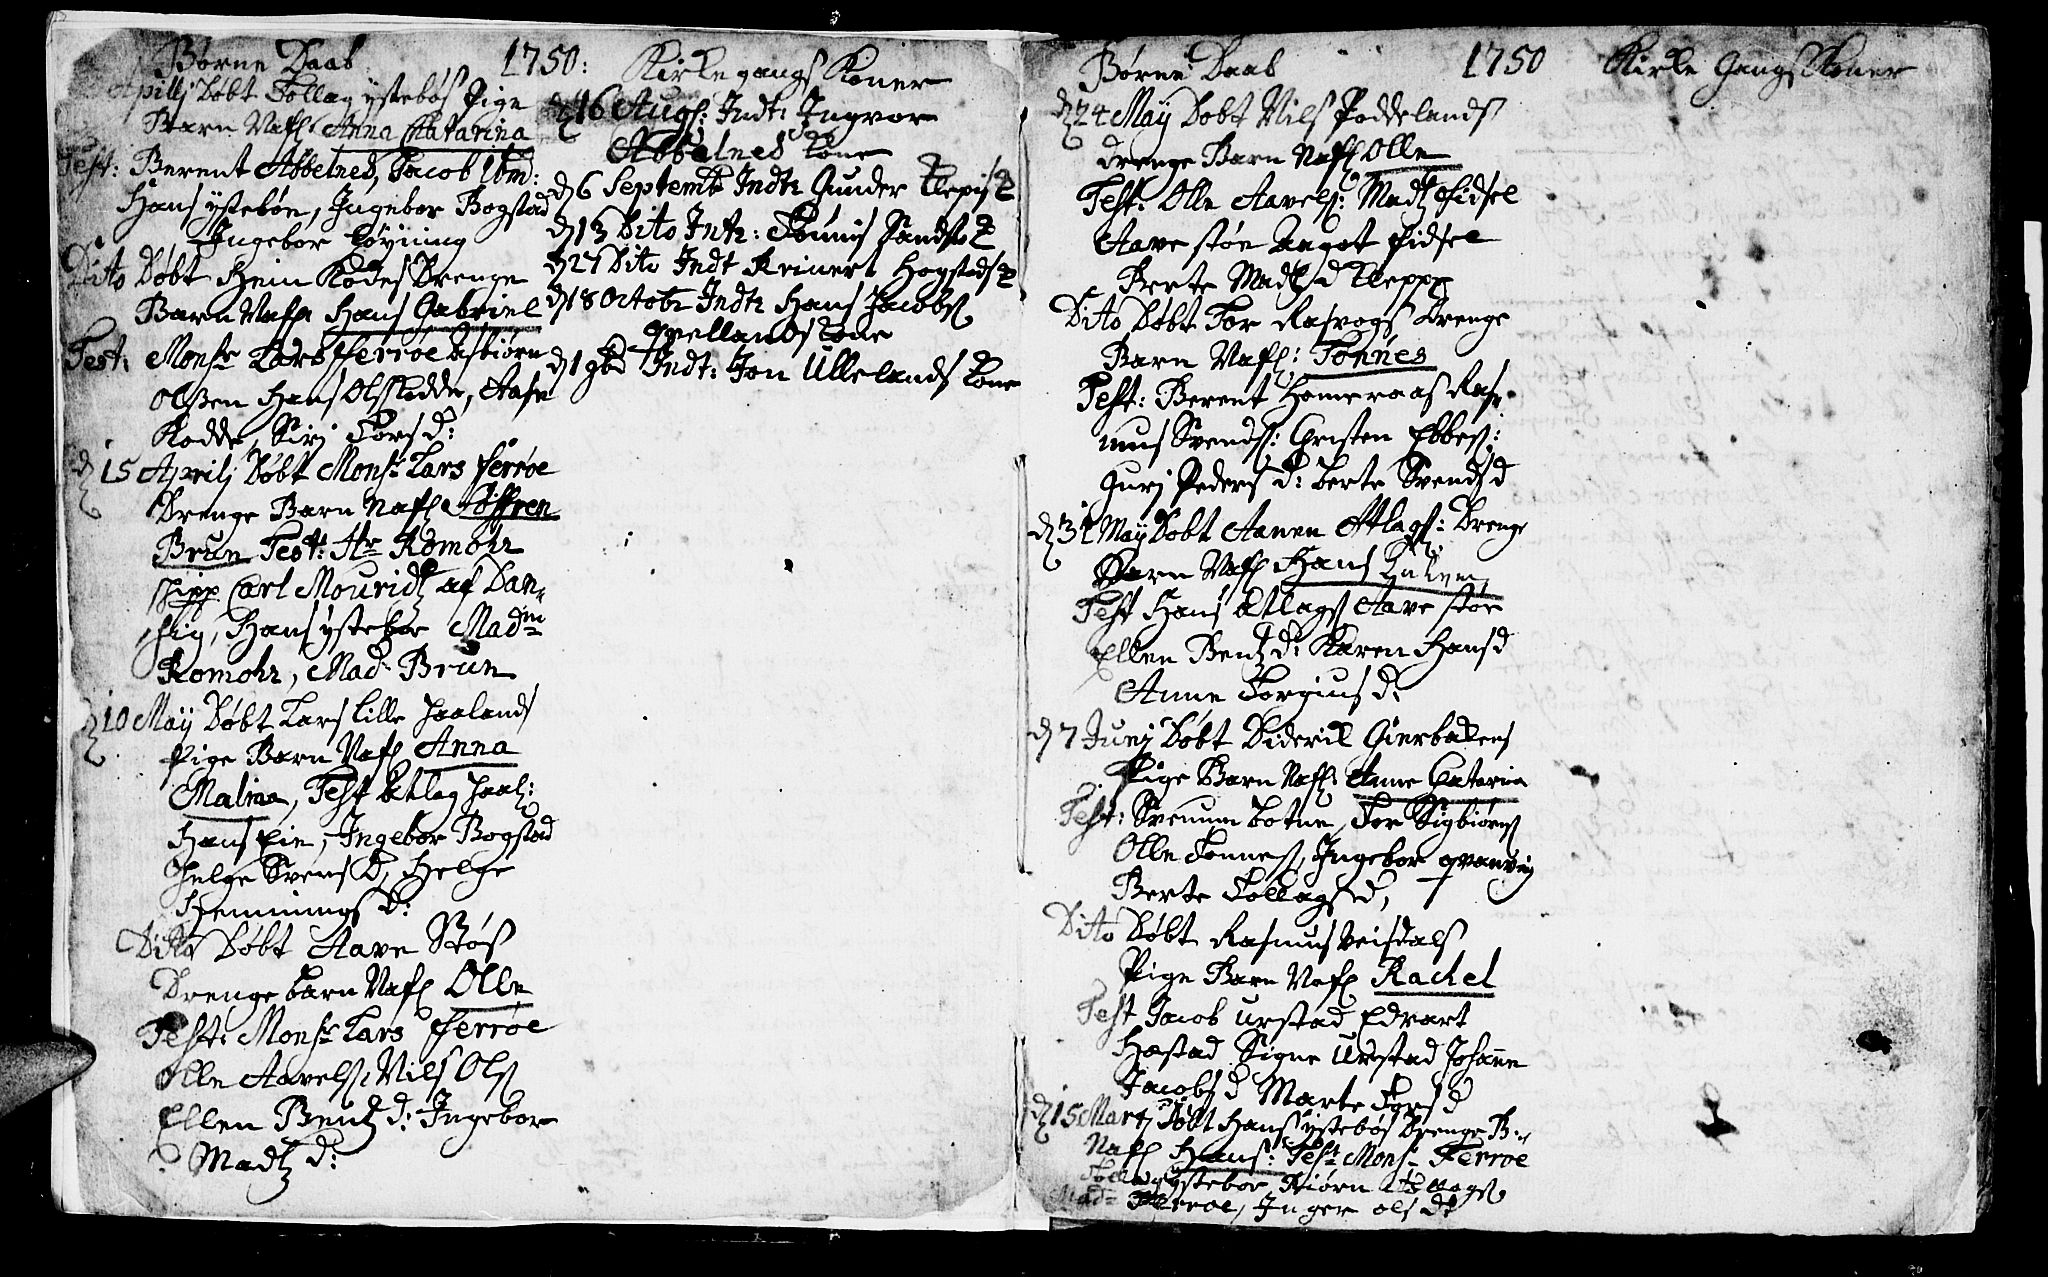 Børne Daab 1750: Kirke gangs Koner
Aprilj Døbt Tollag ystebøs Pige
Barn Nafl. Anna Catarina
Test: Berent Abbelnes, Jacob Ibm:
Hans ystebøe, Ingebor Bogstad
Ingebor Løyning
Dito Døbt Hein Kodes Drenge
Barn Nafl Hans Gabriel
Test: Monsr Lars Ferrøe Asbiørn
Olssen Hans Olss Kodde, Aase
Kodde, Siri Torsd:
d 15 Aprilj Døbt Monsr Lars Ferrøe
Drenge Barn Nafl Søffren
Brun Test: Hr Komohr
Skipp Carl Mouridtz af Dan-
sig, Hans ystebøe Madm
Komohr, Mad. Brun
d 10 Maÿ Døbt Lars Lille Haalands
Pige Barn Nafl Anna
Malina, Test Atlag Haal:
Hans Eie, Ingebor Bogstad
Helge Svens D, Helge
Hemmings d:
Dito Døbt Aave Støs
Drenge barn Nafl Olle
Test: Monsr Lars Ferrøe
Olle Aavels. Nils Ols
Ellen Bentz d: Ingebor
Madtz d:
d 16 Augs: Indt: Ingvor
Abbelnes Kone
d 6 Septembr Indtr Gunder Klepps K
d 13 Dito Intr: Tønnis Sandst K
d 27 Dito Indt Reinert Hogstads K
d 18 Octobr Indtr Hans Jacobs
Qvellands Kone
d 1 9br Indt: Jon Ullelands Kone
Børne Daab 1750 Kirke Gangs Koner
d 24 Maÿ Døbt Nils Poddelands
drenge Barn Nafl Olle
Test: Olle Aavels: Madtz Fidsel
Aave støe Aagot Fidsel
Berte Madtz d Klepp
Dito Døbt Tor Rasvogs Drenge
Barn Nafl: Tønnes
Test: Berent Homeraas Ras-
mus Svends: Cristen Ebbes:
Gurj Peders D: Berte Svends d
d 31 Maÿ Døbt Aanen Atlags: Drenge
Barn Nafl Hans
Test Hans Atlags Aave støe
Ellen Bentz d: Karen Hans d
Anne Torgius d:
d 7 Junj Døbt Diderik Gierbakens
Pige Barn Nafl: Anne Catarina
Test: Svenum Botne, Tor Sigbiørns
Olle Tønnes, Ingebor qvanvig
Berte Tollags d,
Dito Døbt Rasmus Veisdals
Pige Barn Nafl Rachel
Test Jacob urstad Edvart
Hæstad Signe Urstad Johanne
Jacobs d Marte Tors d
d 15 Martj Døbt Hans ystebøs Drenge B.
Nafl Hans: Test Monsr Ferrøe
ystebøe Biørn
Mad: Ferroe, Inger ols dr